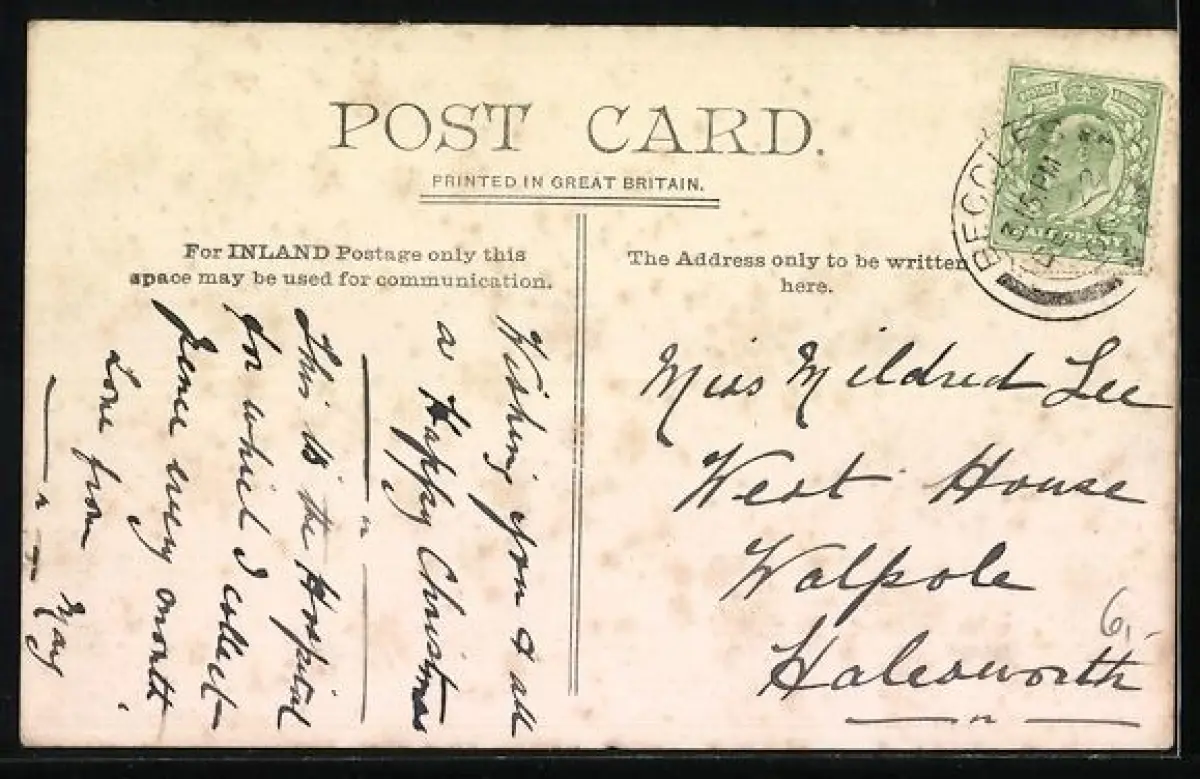 POST CARD.
PRINTED IN GREAT BRITAIN.
For INLAND Postage only this
space may be used for communication.
The Address only to be written
here.
BECCLES
15 PM
HALFPENNY
Wishing you & all
a Happy Christmas
This is the Hospital
for which I collect
pence every month
Love from
May
Miss Mildred Lee
West House
Walpole
Halesworth
6